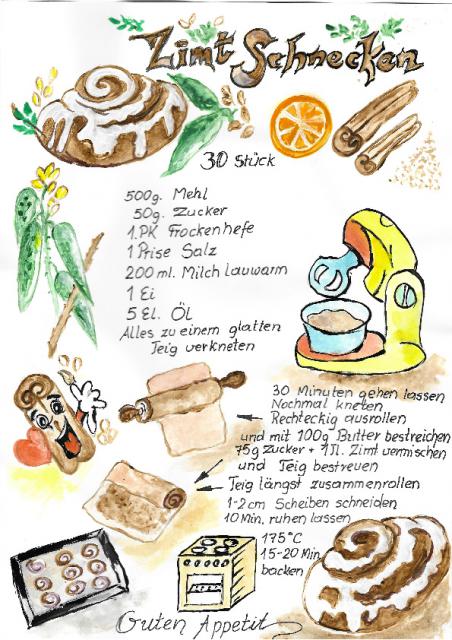 Zimt Schnecken
30 Stück
500g. Mehl
50g. Zucker
1.PK Trockenhefe
1 Prise Salz
200 ml. Milch lauwarm
1 Ei
5 El. Öl
Alles zu einem glatten
Teig verkneten
30 Minuten gehen lassen
Nochmal kneten
Rechteckig ausrollen
und mit 100g Butter bestreichen
75g Zucker + 1 Tl. Zimt vermischen
und Teig bestreuen
Teig längst zusammenrollen
1-2 cm Scheiben schneiden
10 Min. ruhen lassen
175°C
15-20 Min
backen
Guten Appetit